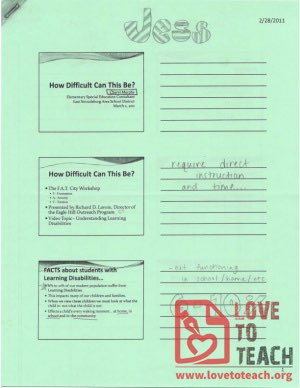 Jess
2/28/2011
How Difficult Can This Be?
Elementary Special Education Consultant
East Stroudsburg Area School District
March 1, 2011
How Difficult Can This Be?
• The F.A.T. City Workshop
• F- Frustration
• A- Anxiety
• T- Tension
• Presented by Richard D. Lavoie, Director of
the Eagle Hill Outreach Program
• Video Topic - Understanding Learning
Disabilities
require direct
instruction
and time...
FACTS about students with
Learning Disabilities...
of our student population suffer from
Learning Disabilities
• This impacts many of our children and families.
• When we view children we must look at what the
child is- not what the child is not
• Effects a child's every waking moment... at home, in
school and in the community
functioning
in school/home/etc
LOVE
TO
TEACH
www.lovetoteach.org